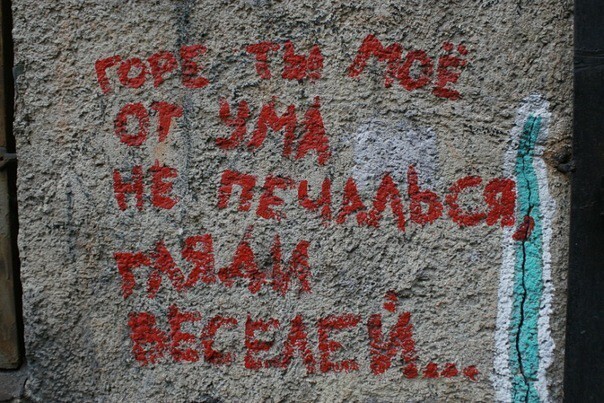 ГОРЕ ТЫ МОЁ
ОТ УМА
НЕ ПЕЧАЛЬСЯ,
ГЛЯДИ
ВЕСЕЛЕЙ...